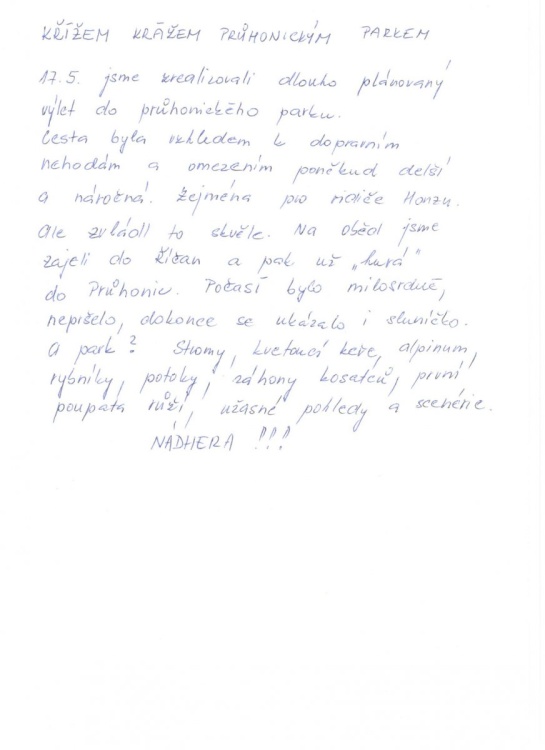 KŘÍŽEM KRÁŽEM PRŮHONICKÝM PARKEM
17.5. jsme zrealizovali dlouho plánovaný
výlet do průhonického parku.
Cesta byla vzhledem k dopravním
nehodám a omezením poněkud delší
a náročná. Zejména pro řidiče Honzu.
Ale zvládl to skvěle. Na oběd jsme
zajeli do Říčan a pak už „hurá"
do Průhonic. Počasí bylo milosrdné,
nepršelo, dokonce se ukázalo i sluníčko.
A park? Stromy, kvetoucí keře, alpinum,
rybníky, potoky, záhony kosatců, první
poupata růží, úžasné pohledy a scenérie.
NÁDHERA !!!